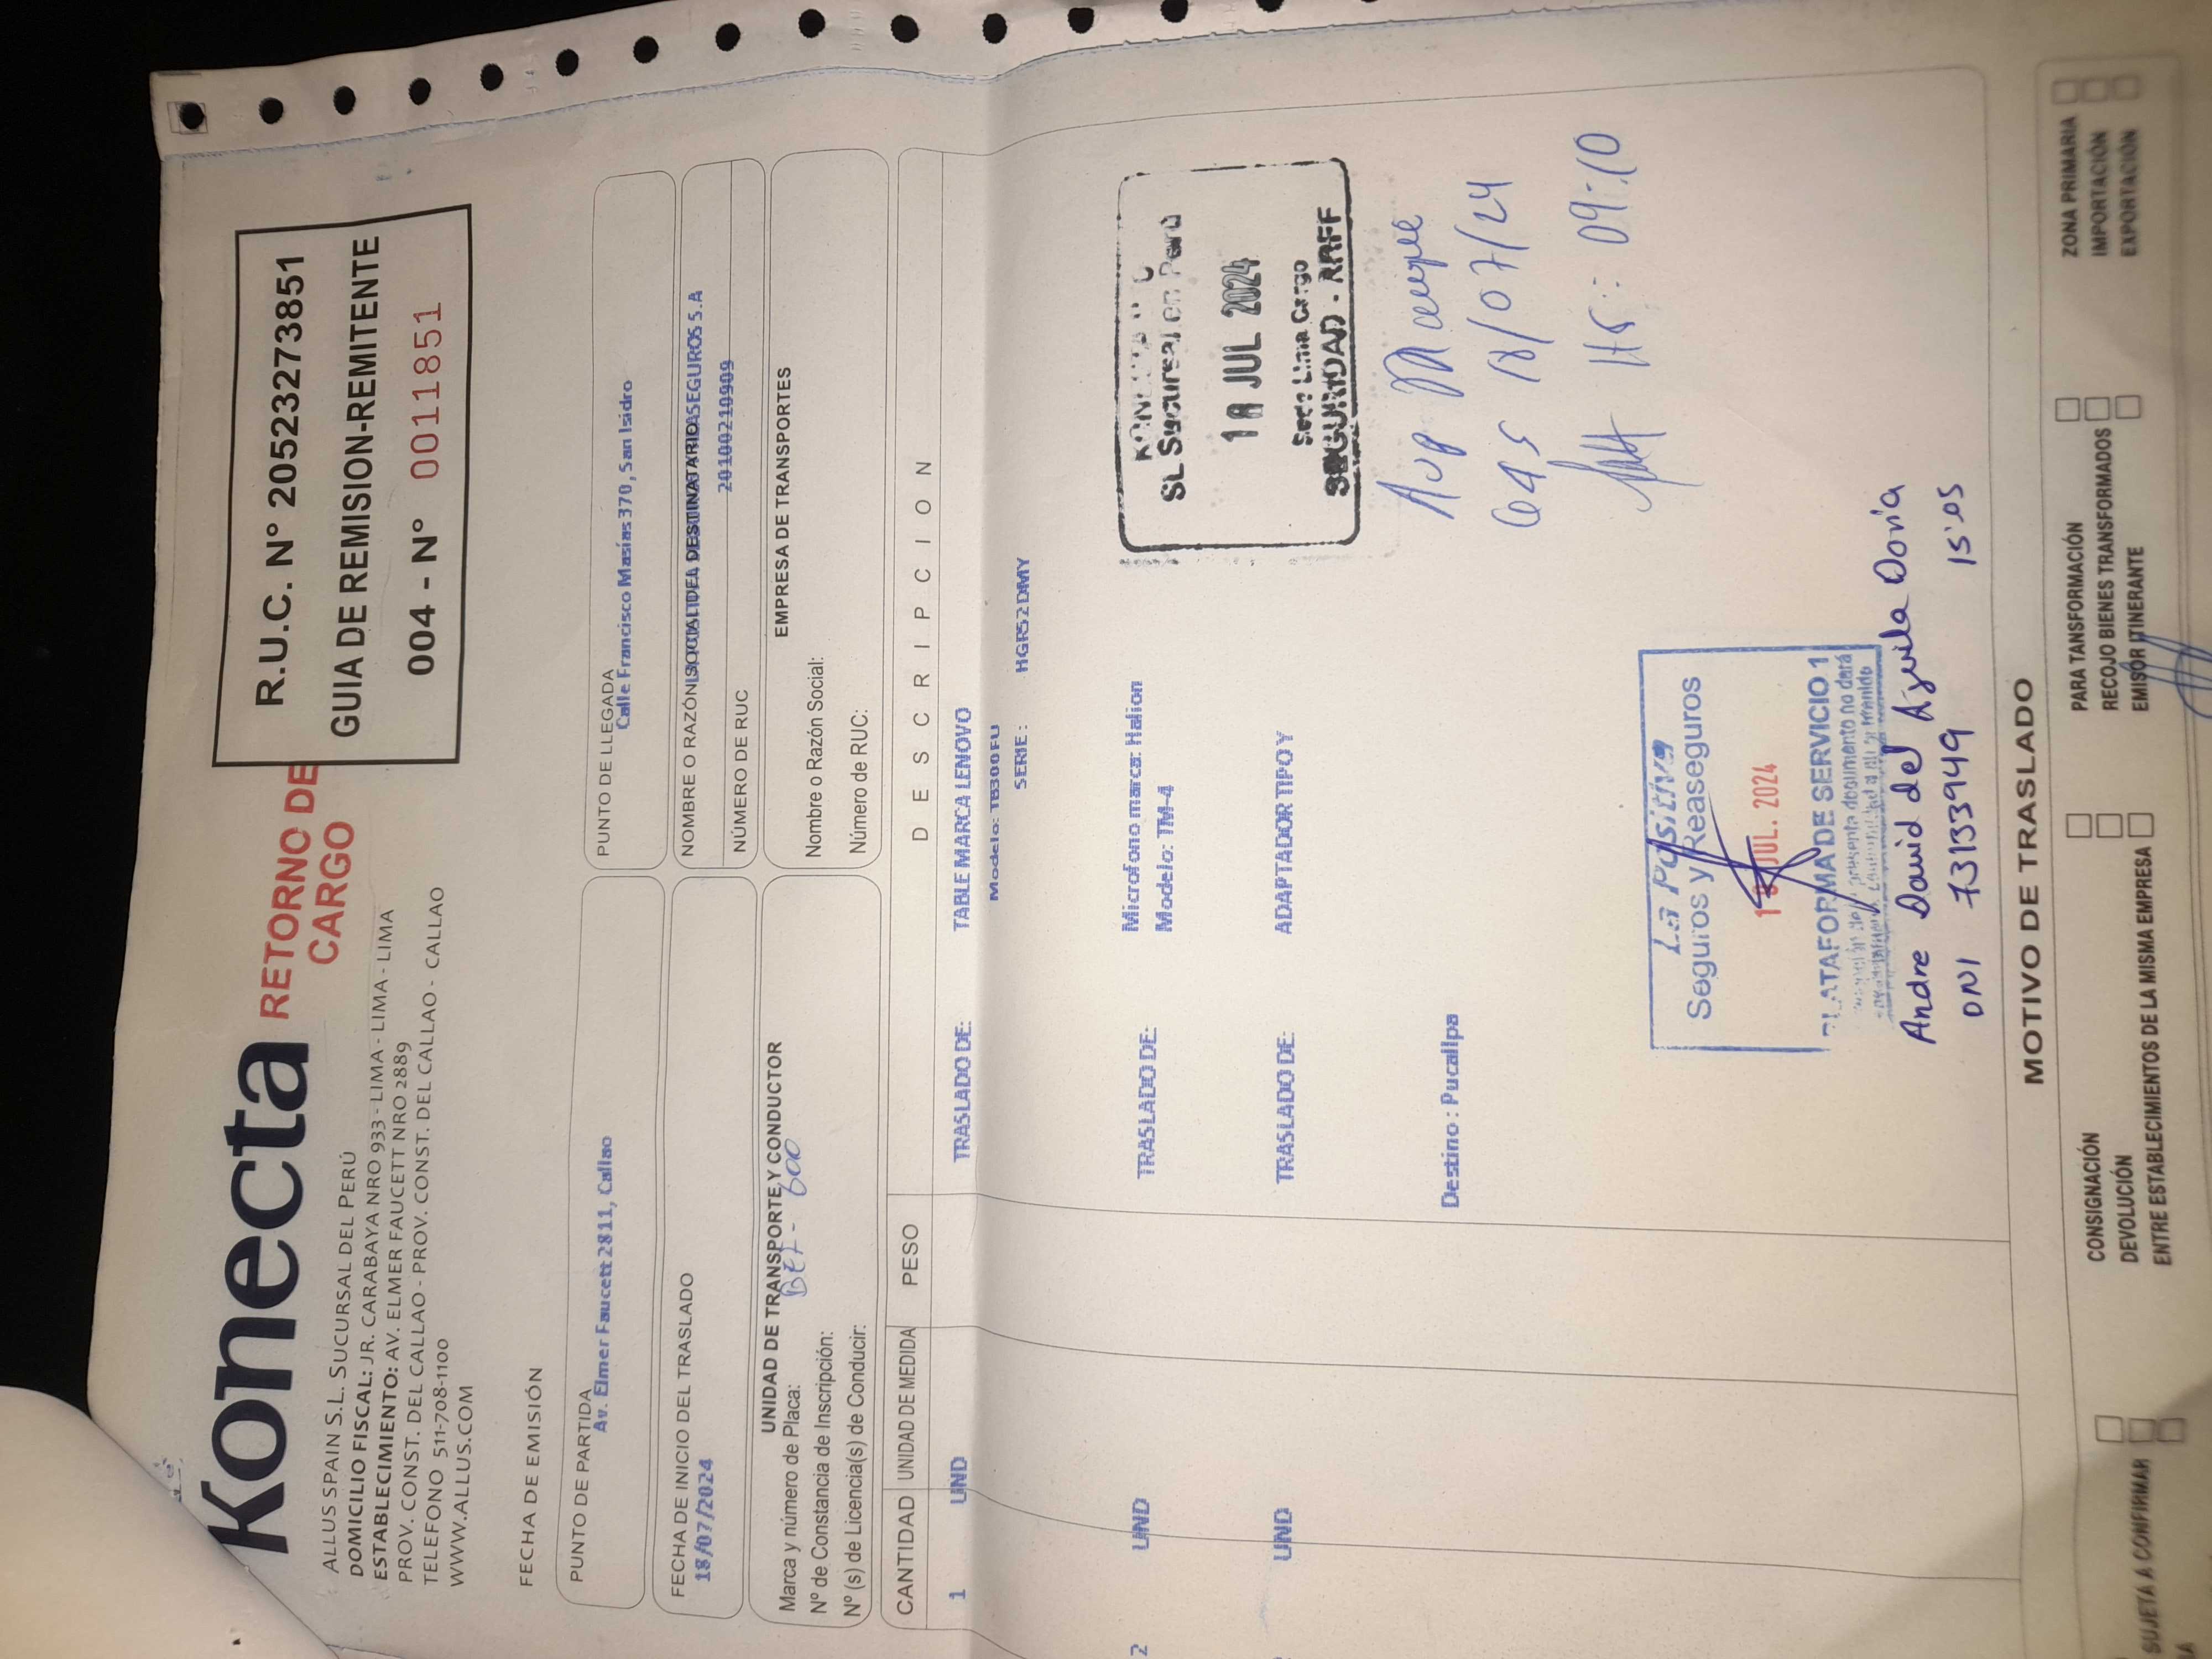 Konecta
RETORNO DE
CARGO
R.U.C. N° 20523273851
GUIA DE REMISION-REMITENTE
004 - N° 0011851
ALLUS SPAIN S.L. SUCURSAL DEL PERÚ
DOMICILIO FISCAL: JR. CARABAYA NRO 933 - LIMA - LIMA - LIMA
ESTABLECIMIENTO: AV. ELMER FAUCETT NRO 2889
PROV. CONST. DEL CALLAO - PROV. CONST. DEL CALLAO - CALLAO
TELEFONO 511-708-1100
WWW.ALLUS.COM
FECHA DE EMISIÓN
PUNTO DE PARTIDA
Av. Elmer Faucett 2811, Callao
PUNTO DE LLEGADA
Calle Francisco Masías 370, San Isidro
FECHA DE INICIO DEL TRASLADO
18/07/2024
NOMBRE O RAZÓN SOCIAL DEL DESTINATARIO SEGUROS S.A
NÚMERO DE RUC
20100210909
UNIDAD DE TRANSPORTE Y CONDUCTOR
Marca y número de Placa: 600
Nº de Constancia de Inscripción:
Nº (s) de Licencia(s) de Conducir:
EMPRESA DE TRANSPORTES
Nombre o Razón Social:
Número de RUC:
CANTIDAD UNIDAD DE MEDIDA PESO DESCRIPCION
1 UND TRASLADO DE: TABLE MARCA LENOVO
Modelo: TB300FU
SERIE : HGR52DMY
2 UND TRASLADO DE: Microfono marca: Halion
Modelo: TM-4
UND TRASLADO DE: ADAPTADOR TIPO Y
Destino : Pucallpa
SL Sucursal en Perú
18 JUL 2024
Sede Lima Cargo
SEGURIDAD - RRFF
18/07/24
09:10
La Positiva
Seguros y Reaseguros
JUL. 2024
PLATAFORMA DE SERVICIO 1
Andre David del Aguila Doria
DNI 73133949 15:05
MOTIVO DE TRASLADO
CONSIGNACIÓN
DEVOLUCIÓN
ENTRE ESTABLECIMIENTOS DE LA MISMA EMPRESA
PARA TRANSFORMACIÓN
RECOJO BIENES TRANSFORMADOS
EMISOR ITINERANTE
ZONA PRIMARIA
IMPORTACIÓN
EXPORTACIÓN
SUJETA A CONFIRMAR